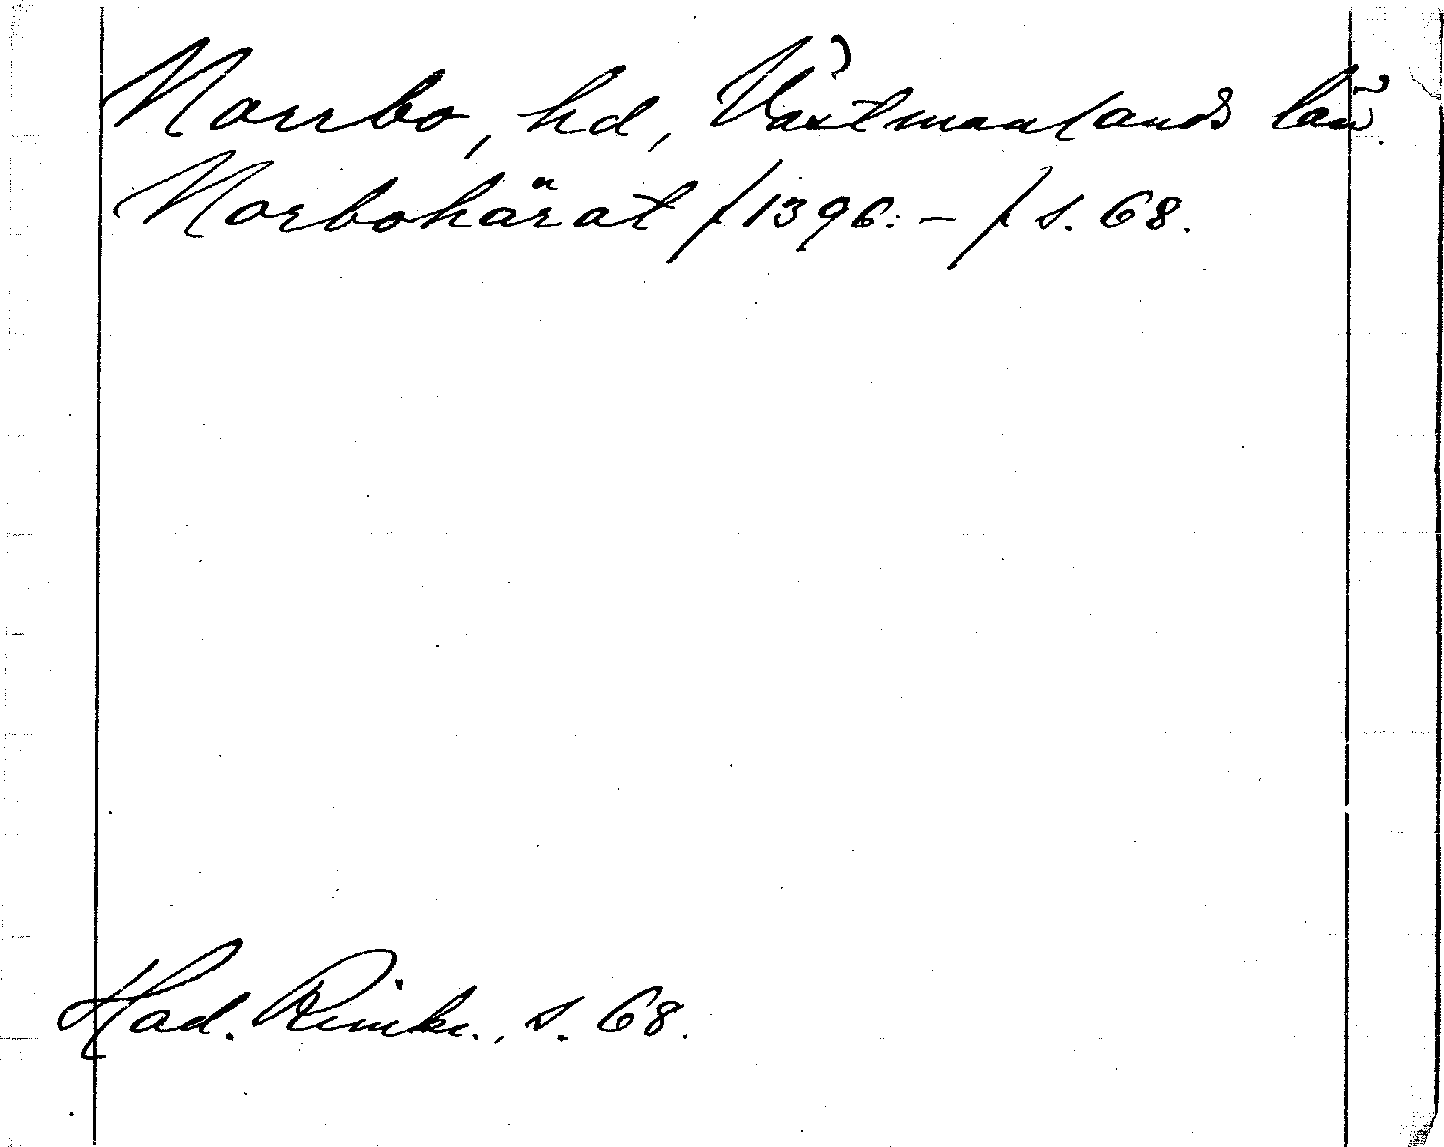 Norrbo, hd, Västmanlands län.
Norbohärat /1396.-/ s. 68.
Had. Rimkr., s. 68.